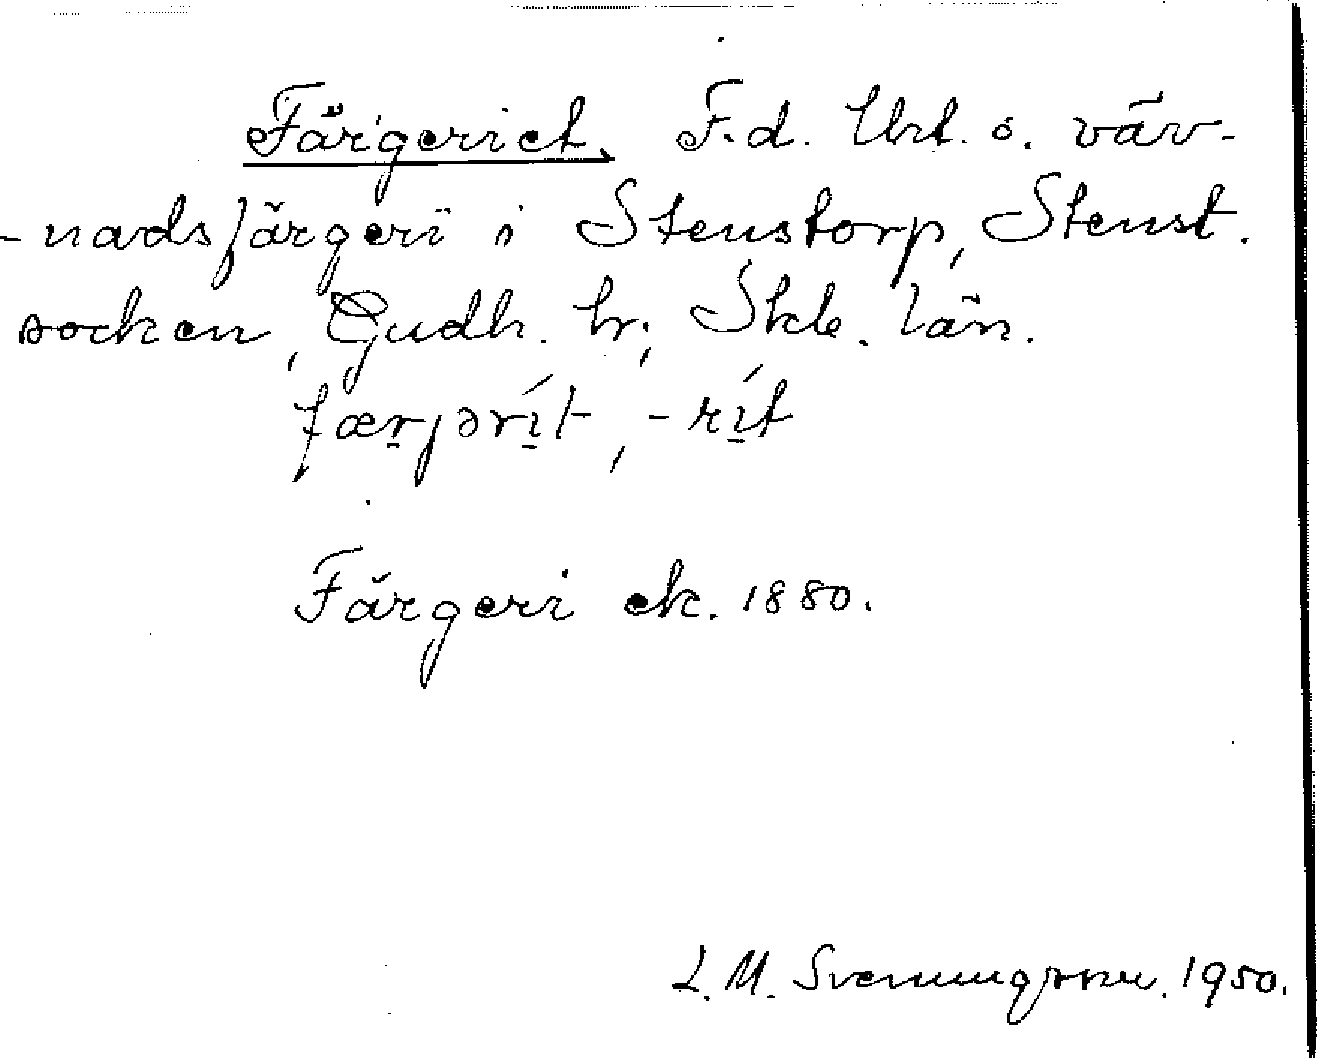 Färgeriet. F.d. Urt. o. väv-
-nadsfärgeri i Stenstorp, Stenst.
socken, Gudh. hr; Skb. län.
færjərít, -rít
Färgeri ek. 1880.
L. M. Svenungsson. 1950.